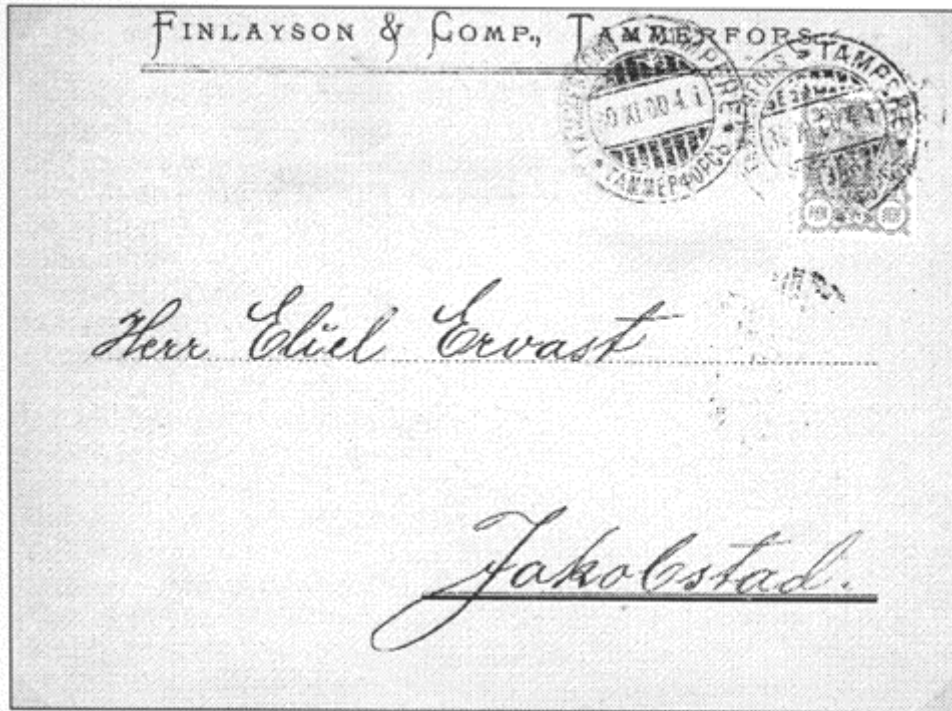 FINLAYSON & COMP., TAMMERFORS.
TAMPERE
0 XI.00.4 i
ТАММЕРФОРСЪ
TAMMERFORS TAMPERE
PEN PEN
Herr Eliel Ervast
Jakobstad.